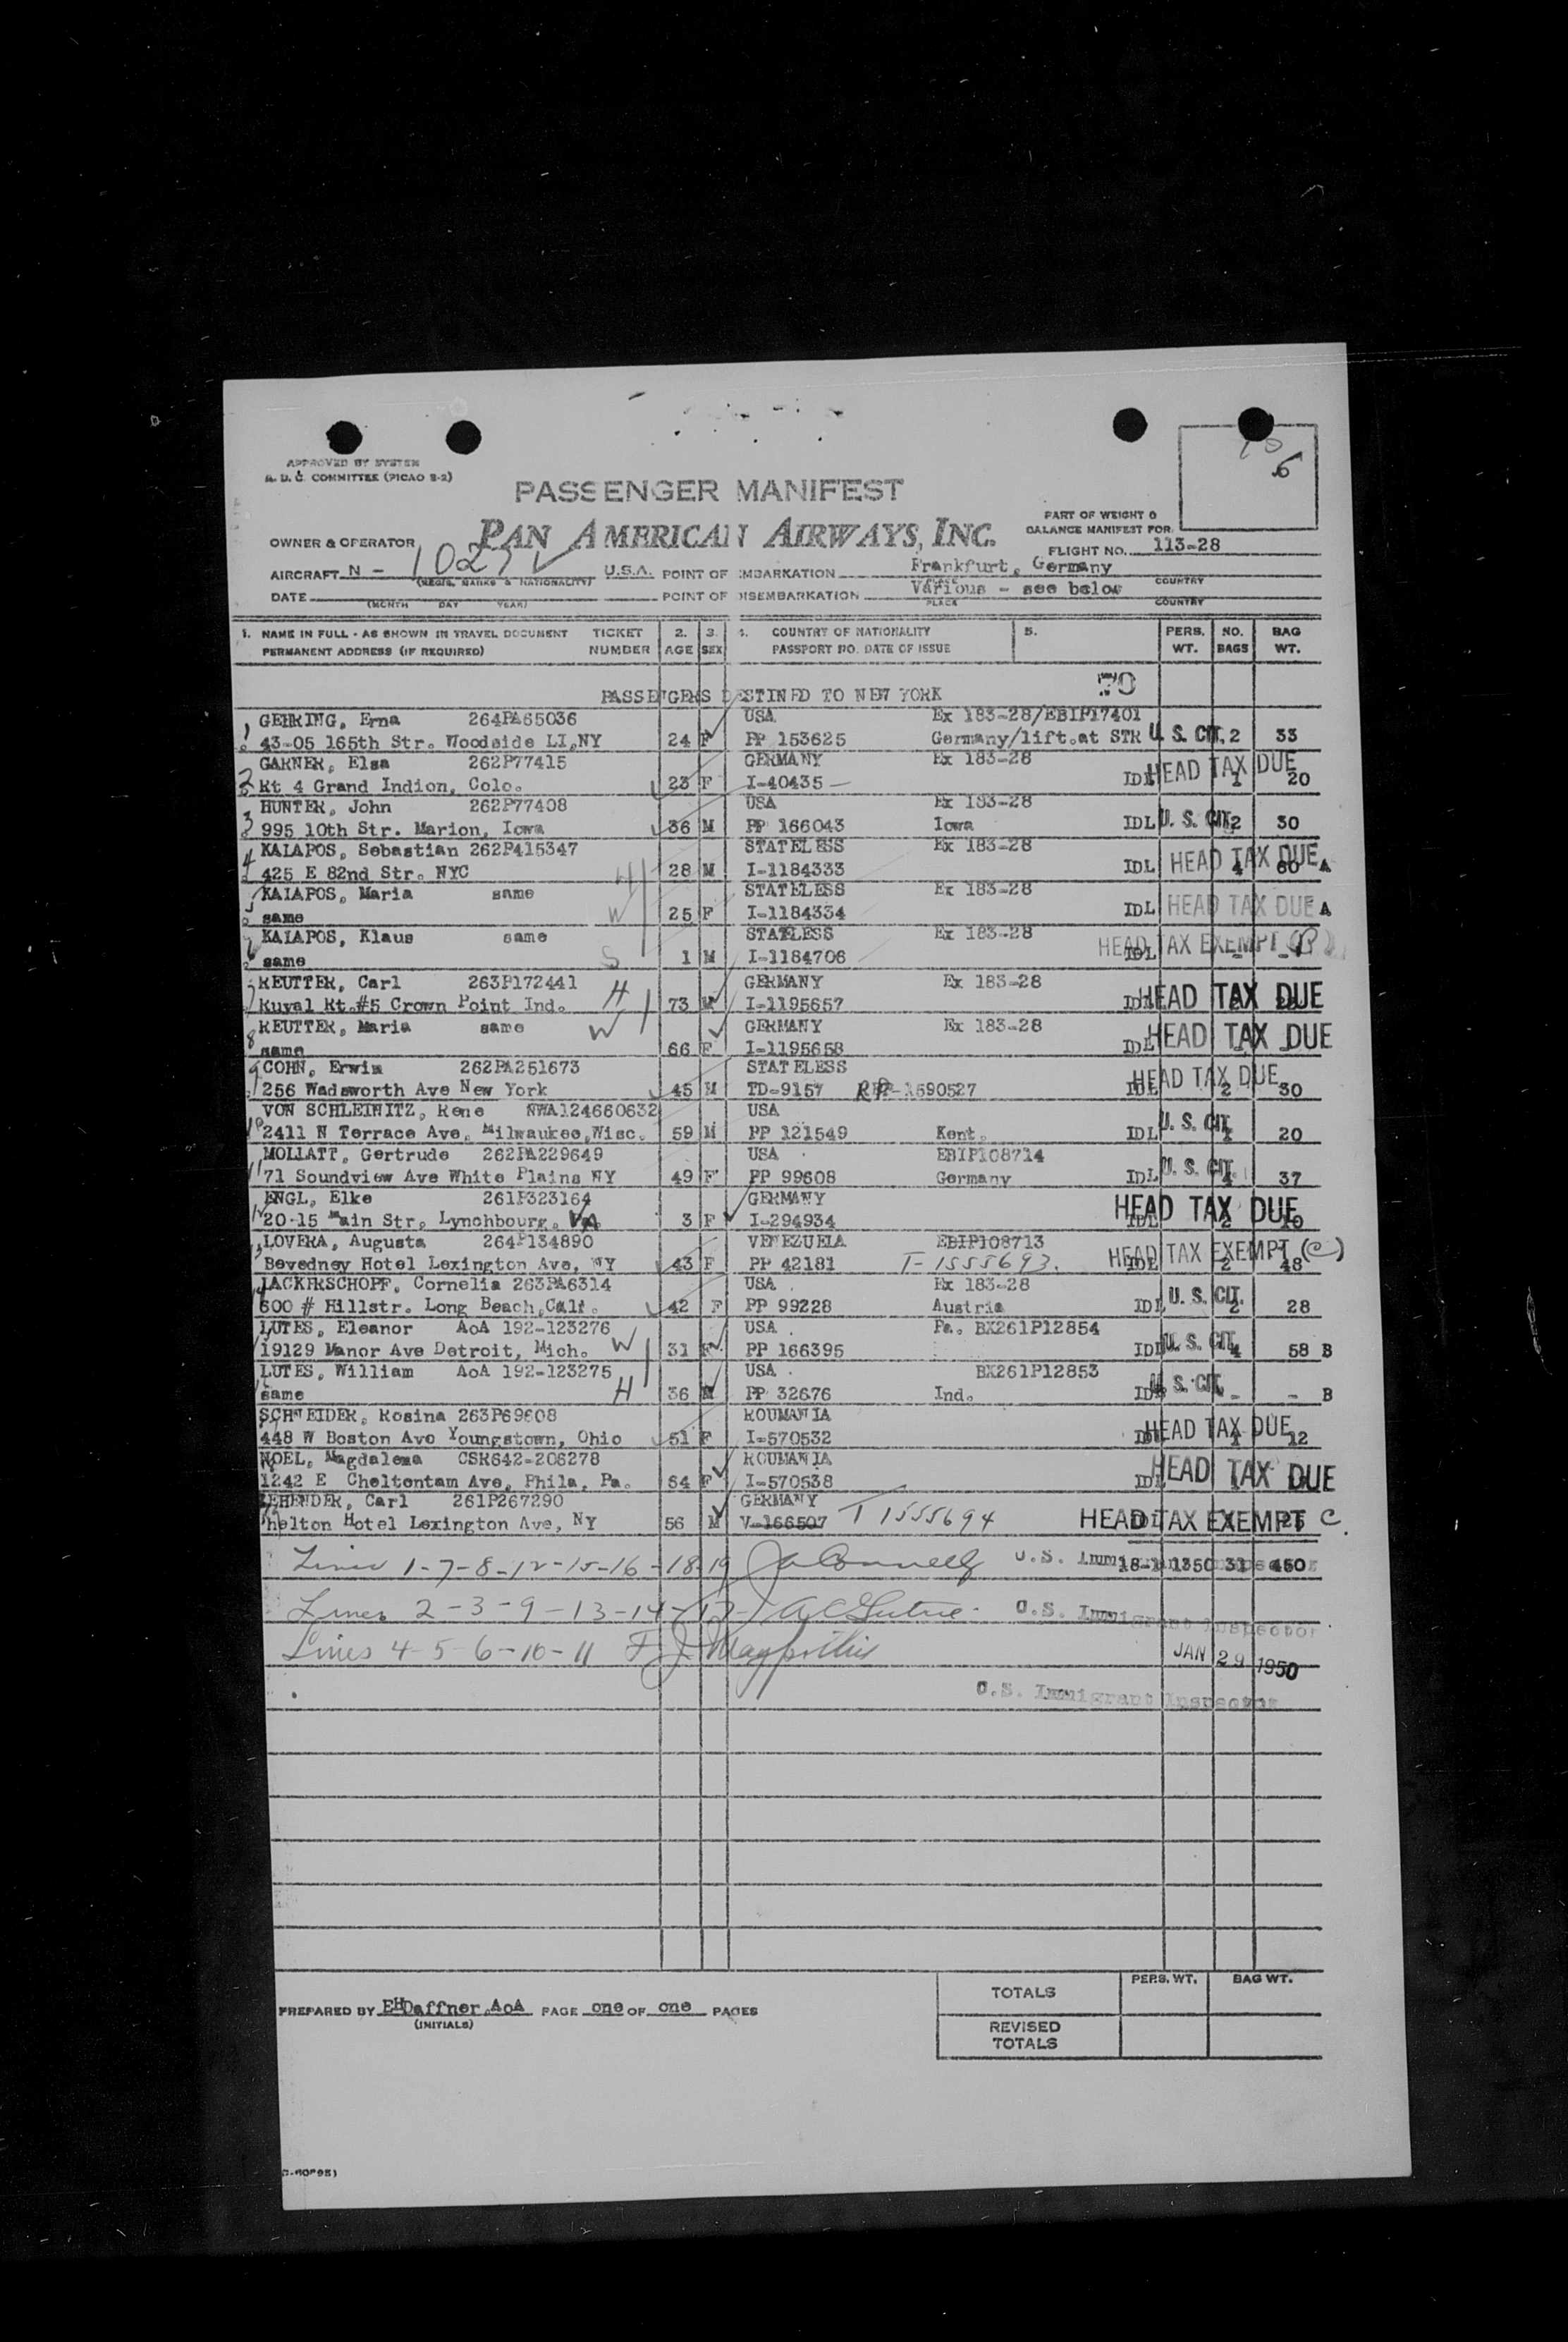 APPROVED BY SYSTEM
A. D. C. COMMITTEE (PICAO S-2)
PASSENGER MANIFEST
PAN AMERICAN AIRWAYS, INC.
PART OF WEIGHT &
BALANCE MANIFEST FOR
OWNER & OPERATOR
FLIGHT NO. 113-28
AIRCRAFT N - U.S.A. POINT OF EMBARKATION Frankfurt, Germany
(REGIS. MARKS & NATIONALITY) PLACE COUNTRY
DATE POINT OF DISEMBARKATION Various - see below
(MONTH DAY YEAR) PLACE COUNTRY
1. NAME IN FULL - AS SHOWN IN TRAVEL DOCUMENT TICKET 2. 3. 4. COUNTRY OF NATIONALITY 5. PERS. NO. BAG
PERMANENT ADDRESS (IF REQUIRED) NUMBER AGE SEX PASSPORT NO. DATE OF ISSUE WT. BAGS WT.
PASSENGERS DESTINED TO NEW YORK 70
1 GEHRING, Erna 264PA65036 USA Ex 183-28/EBIP17401
43-05 165th Str. Woodside LI,NY 24 F PP 153625 Germany/lift.at STR U. S. CIT. 2 33
2 GARNER, Elsa 262P77415 GERMANY Ex 183-28
Rt 4 Grand Indion, Colo. 23 F I-40435 IDL HEAD TAX DUE 1 20
3 HUNTER, John 262P77408 USA Ex 183-28
995 10th Str. Marion, Iowa 36 M PP 166043 Iowa IDL U. S. CIT. 2 30
4 KALAPOS, Sebastian 262P415347 STATELESS Ex 183-28
425 E 82nd Str. NYC H 28 M I-1184333 IDL HEAD TAX DUE 4 60 A
5 KALAPOS, Maria same STATELESS Ex 183-28
same W 25 F I-1184334 IDL HEAD TAX DUE A
6 KALAPOS, Klaus same STATELESS Ex 183-28
same S 1 M I-1184706 IDL HEAD TAX EXEMPT (B)
7 REUTTER, Carl 263P172441 GERMANY Ex 183-28
Ruval Rt.#5 Crown Point Ind. H 73 M I-1195657 IDL HEAD TAX DUE
8 REUTTER, Maria same GERMANY Ex 183-28
same W 66 F I-1195658 IDL HEAD TAX DUE
9 COHN, Erwin 262PA251673 STATELESS
256 Wadsworth Ave New York 45 M TD-9157 IDL HEAD TAX DUE 2 30
10 VON SCHLEINITZ, Rene NWA124660632 USA
2411 N Terrace Ave, Milwaukee,Wisc. 59 M PP 121549 Kent. IDL U. S. CIT. 20
11 MOLLATT, Gertrude 262PA229649 USA EBIP108714
71 Soundview Ave White Plains NY 49 F PP 99608 Germany IDL U. S. CIT. 4 37
12 ENGL, Elke 261P323164 GERMANY
20-15 Main Str, Lynchbourg, VA 3 F I-294934 IDL HEAD TAX DUE 2 10
13 LOVERA, Augusta 264P134890 VENEZUELA EBIP108713
Bevedney Hotel Lexington Ave, NY 43 F PP 42181 T-1555693. IDL HEAD TAX EXEMPT (C) 2 48
14 LACKERSCHOPF, Cornelia 263PA6314 USA Ex 183-28
600 # Hillstr. Long Beach,Calf. 42 F PP 99228 Austria IDL U. S. CIT. 2 28
LUTES, Eleanor AoA 192-123276 USA Pa. BX261P12854
19129 Manor Ave Detroit, Mich. W 31 F PP 166395 IDL U. S. CIT. 4 58 B
LUTES, William AoA 192-123275 USA BX261P12853
same H 36 M PP 32676 Ind. IDL U. S. CIT. - - B
SCHNEIDER, Rosina 263P69608 ROUMANIA
448 W Boston Ave Youngstown, Ohio 51 F I-570532 IDL HEAD TAX DUE 1 12
NOEL, Magdalena CSR642-206278 ROUMANIA
1242 E Cheltentam Ave, Phila, Pa. 64 F I-570538 IDL HEAD TAX DUE
ZEHENDER, Carl 261P267290 GERMANY
Shelton Hotel Lexington Ave, NY 56 M V-166507 T 1555694 HEAD TAX EXEMPT C.
Lines 1-7-8-12-15-16-18-19 U.S. Immigrant Inspector 18-1 1350 31 450
Lines 2-3-9-13-14-17- U.S. Immigrant Inspector
Lines 4-5-6-10-11
JAN 29 1950
U.S. Immigrant Inspector
PERS. WT. BAG WT.
TOTALS
PREPARED BY EHDaffner,AoA PAGE one OF one PAGES
(INITIALS)
REVISED
TOTALS